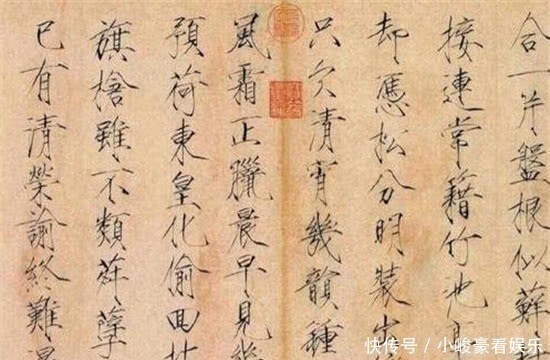 合一片盤根似蘇
接連常籍竹池
却憑松分明裝
只欠清宵幾韻種
風霜正臘晨早見幾
預荷東皇化偷回
旗槍雖不類荈孽
已有清榮諭終難
快传号 / 小峻豪看娱乐